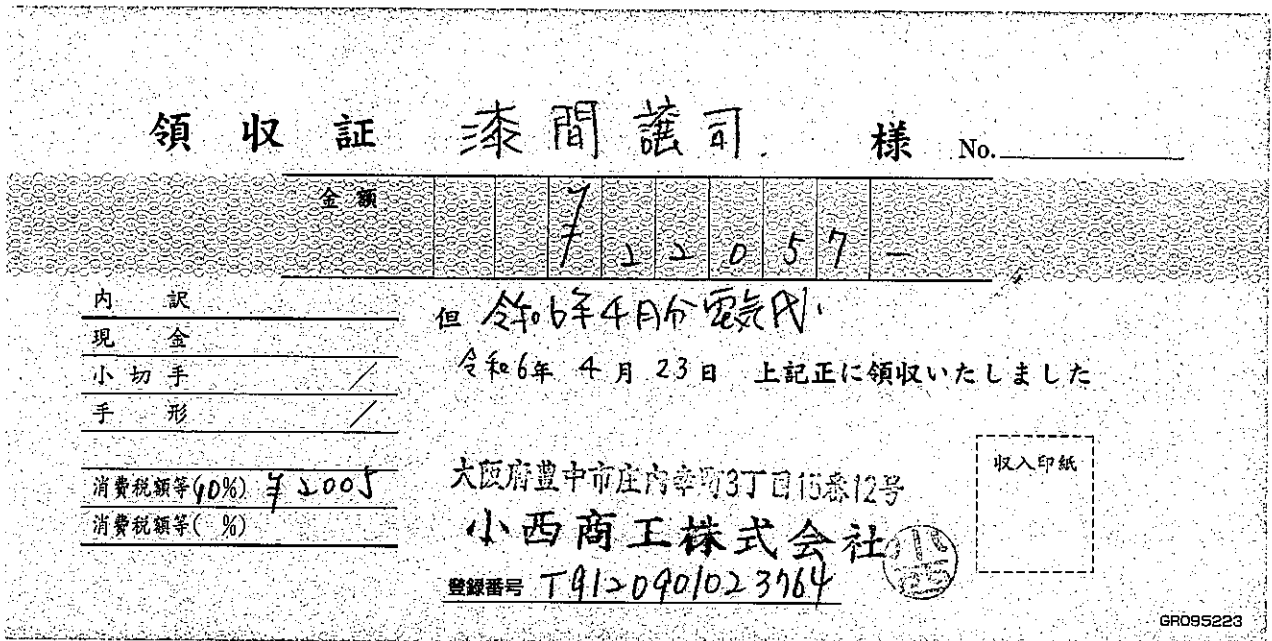 領 収 証 漆間譲司 様 No.
金額 ¥22057-
内 訳
現 金
小切手 /
手 形 /
消費税額等(10%) ¥2005
消費税額等( %)
但 令和6年4月分電気代
令和6年 4月 23日 上記正に領収いたしました
大阪府豊中市庄内幸町3丁目15番12号
小西商工株式会社
登録番号 T9120901023764
小西
収入印紙
GR095223